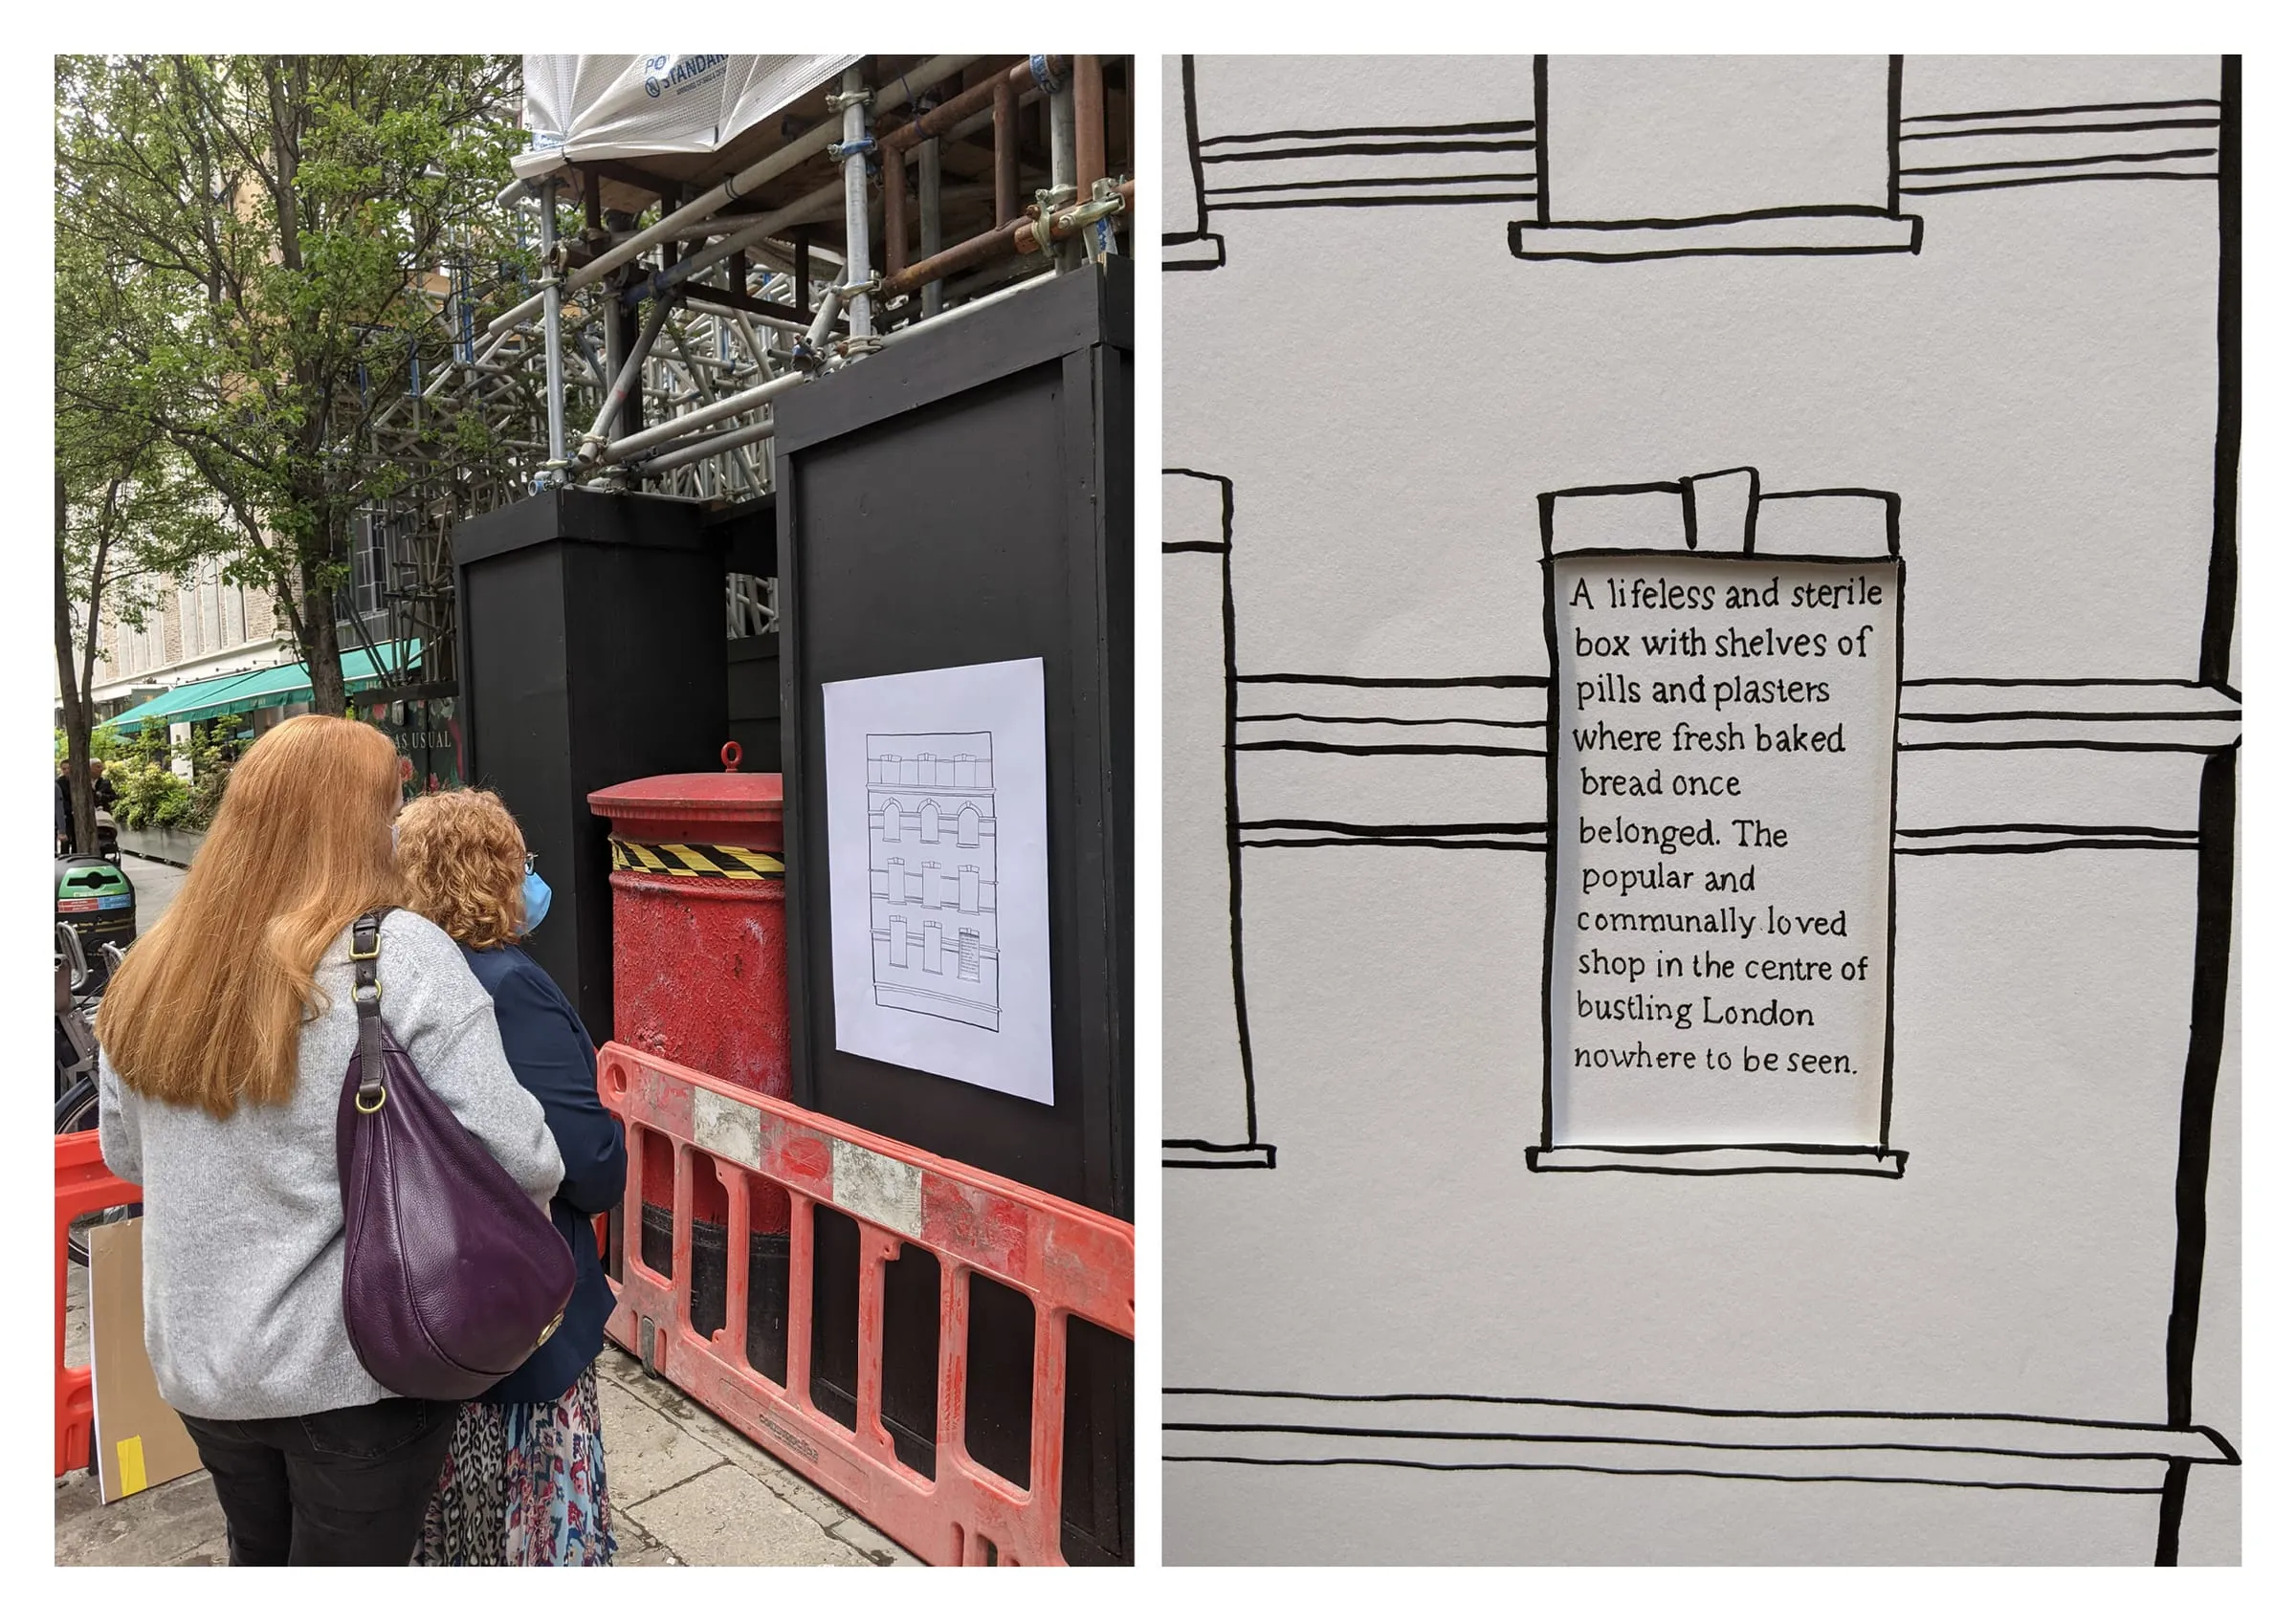 STANDARD
AS USUAL
A lifeless and sterile
box with shelves of
pills and plasters
where fresh baked
bread once
belonged. The
popular and
communally loved
shop in the centre of
bustling London
nowhere to be seen.